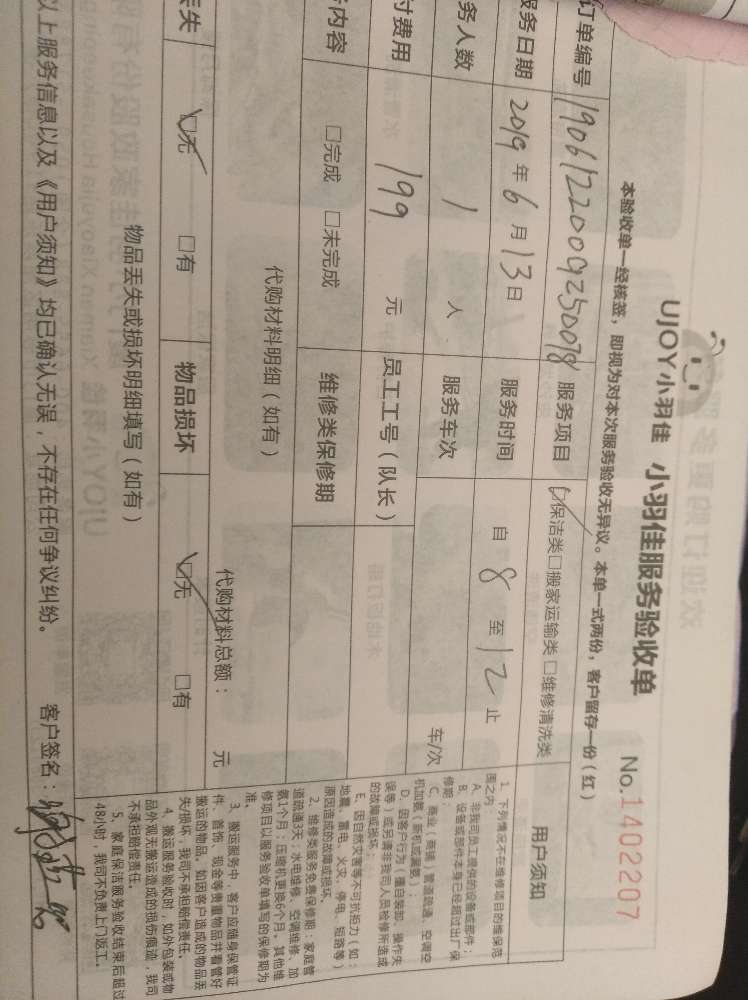 UJOY小羽佳 小羽佳服务验收单 No.1402207
本验收单一经核签，即视为对本次服务验收无异议。本单一式两份，客户留存一份（红）
订单编号 1906122009250078 服务项目 保洁类□搬家运输类□维修清洗类
服务日期 2019年6月13日 服务时间 自8至12止
务人数 1人 服务车次 车/次
付费用 199元 员工工号（队长）
内容 □完成 □未完成 维修类保修期
代购材料明细（如有）
代购材料总额： 元
丢失 □无 □有 物品损坏 □无 □有
物品丢失或损坏明细填写（如有）
以上服务信息以及《用户须知》均已确认无误，不存在任何争议纠纷。 客户签名：
用户须知
1、下列情况不在维修项目的维保范
围之内：
A、非我司员工提供的设备或部件；
B、设备或部件本身已经超过出厂保
修期；
C、商业（商铺）管道疏通、空调空
机加氨（新机或漏氨）；
D、因客户行为（擅自装卸、操作失
误等）或另请非我司人员检修所造成
的故障或损坏；
E、因自然灾害等不可抗拒力（如：
地震、雷电、火灾、停电、短路等）
原因造成的故障或损坏。
2、维修类服务免费保修期：家庭管
道疏通3天；水电维修、空调维修、加
氨1个月；压缩机更换6个月。其他维
修项目以服务验收单填写的保修期为
准。
3、搬运服务中，客户应随身保管证
件、首饰、现金等贵重物品并看管好
搬运的物品。如因客户造成的物品丢
失/损坏，我司不承担赔偿责任。
4、搬运服务验收时，如外包装或物
品外观无搬运造成的损伤痕迹，我司
不承担赔偿责任。
5、家庭保洁服务验收结束后超过
48小时，我司不负责上门返工。